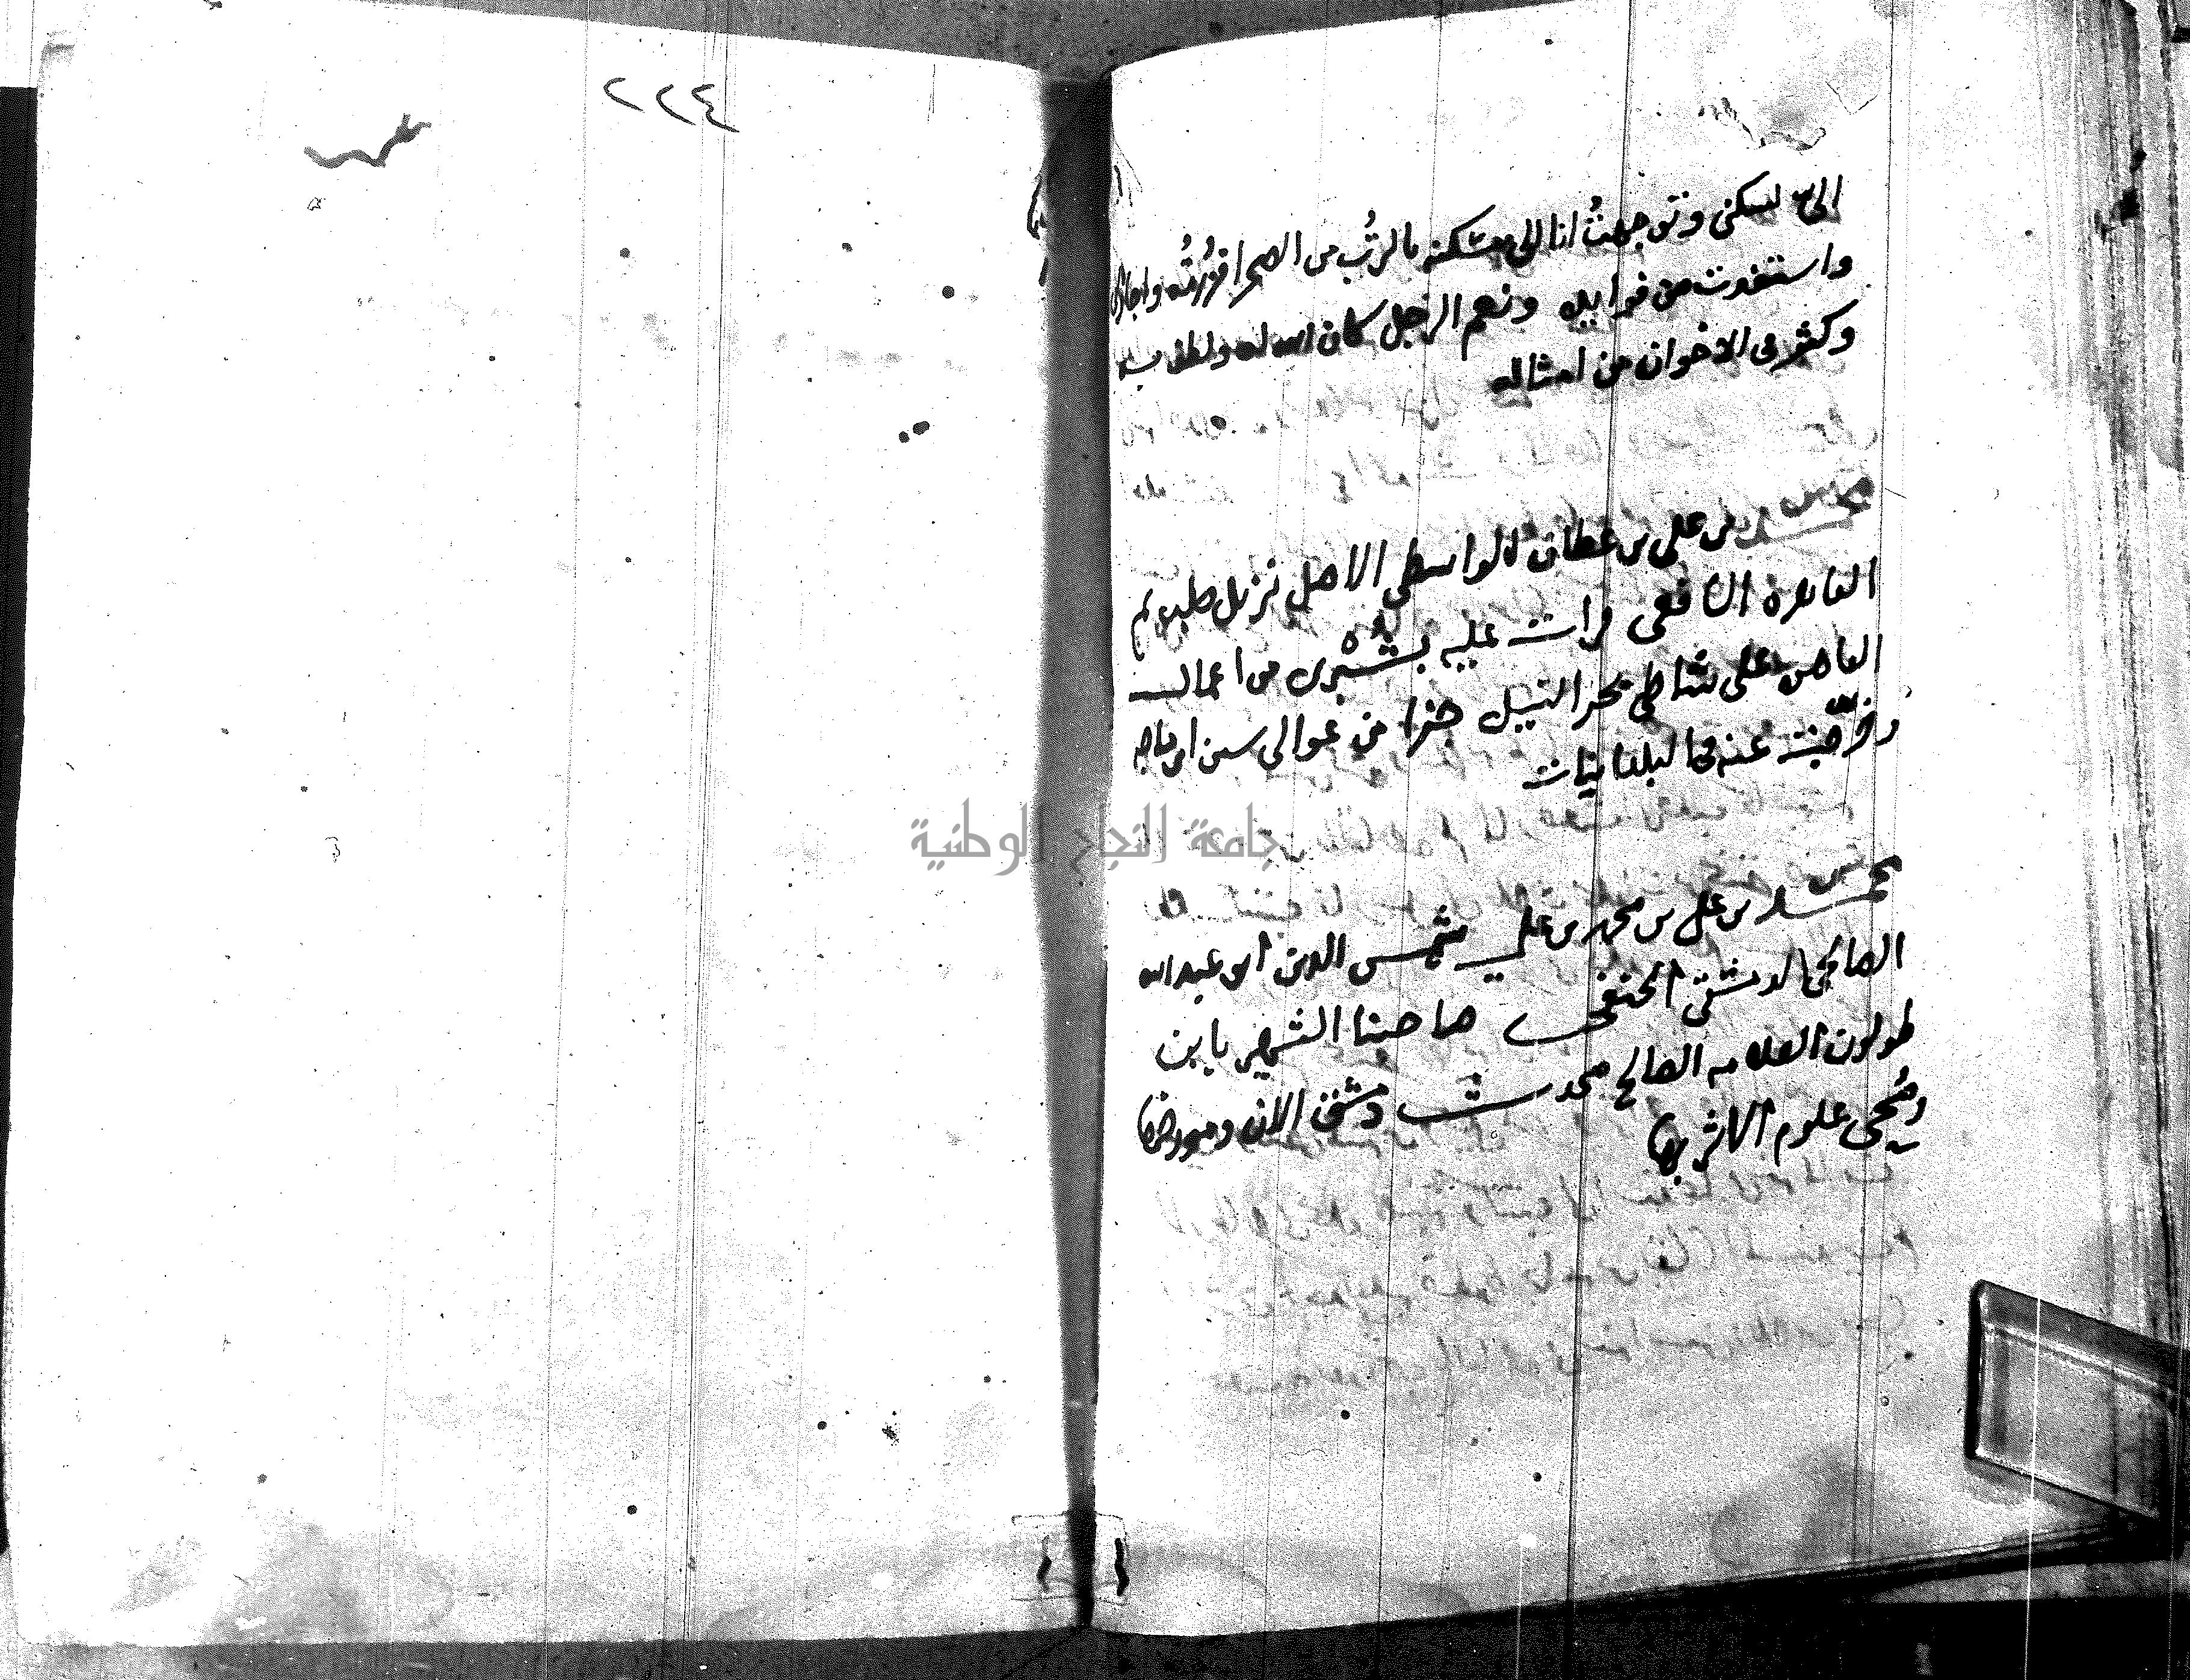 الى لسكنى وتوجهتُ انا الى مسكنه بالترب من الصحرا فزُرتُه واجازنى
واستفدت من فوايده ونعم الرجل كان الله له ولطف به
وكثر فى الاخوان من امثاله
محمد بن على بن عطاف الواسطى الاصل نزيل حلب ثم
القاهرة الشافعى قرات عليه بشُبْرى من اعمال
القاهره على شاطى بحر النيل جزا من عوالى سنن ابن ماجه
وخرّجت عنه فى البلدانيات
محمد بن على بن محمد بن على شمس الدين ابو عبد الله
الصالحى الدمشقى الحنفى صاحبنا الشهير بابن
طولون العلامه الصالح محدث دمشق الان ومورخها
ومُحيى علوم الاثر بها
٢٢٤
جامعة النجاح الوطنية